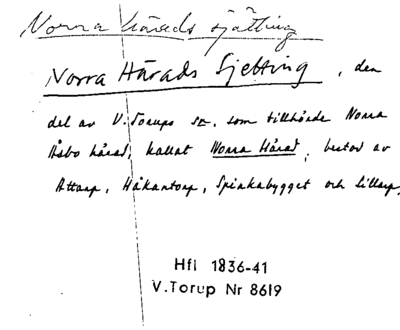 Norra härads sjätting
Norra Härads Sjetting, den
del av V. Torups sn, som tillhörde Norra
Åsbo härad, kallat Norra Härad, bestod av
Attarp, Håkantorp, Spinkabygget och Lillarp.
Hfl 1836-41
V.Torup Nr 8619